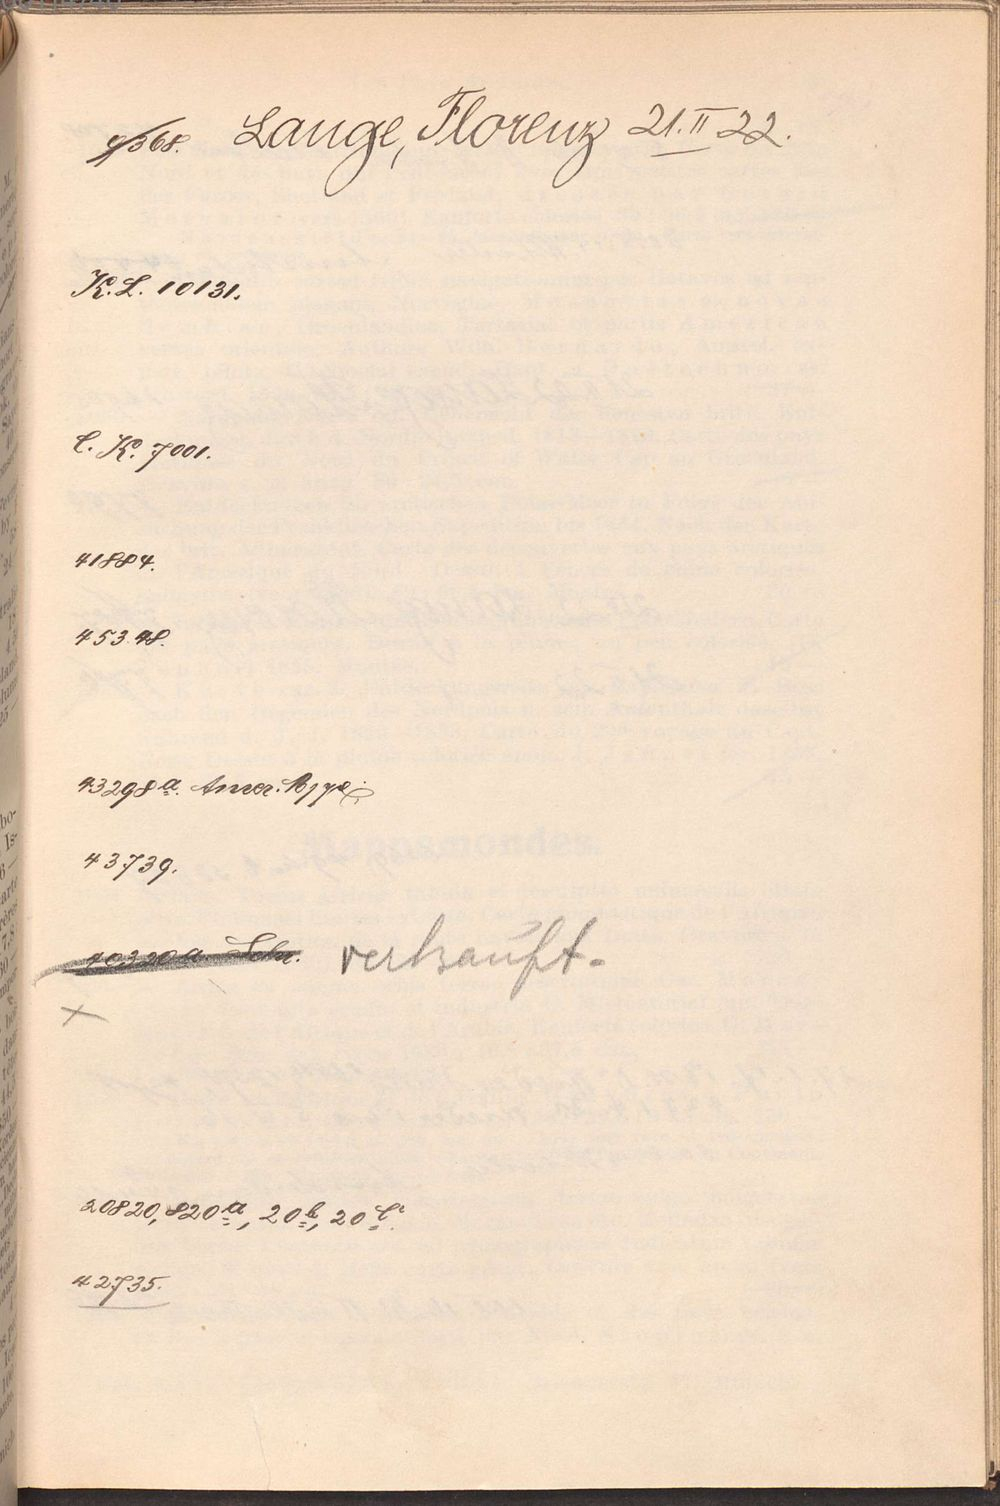 Lange, Florenz 21.II 22.
K.L. 10131.
C. K. 7001.
41884.
453.48.
43298a.
43739.
40320a. verkauft.
×
20820, 820a, 20b, 20c.
42735.